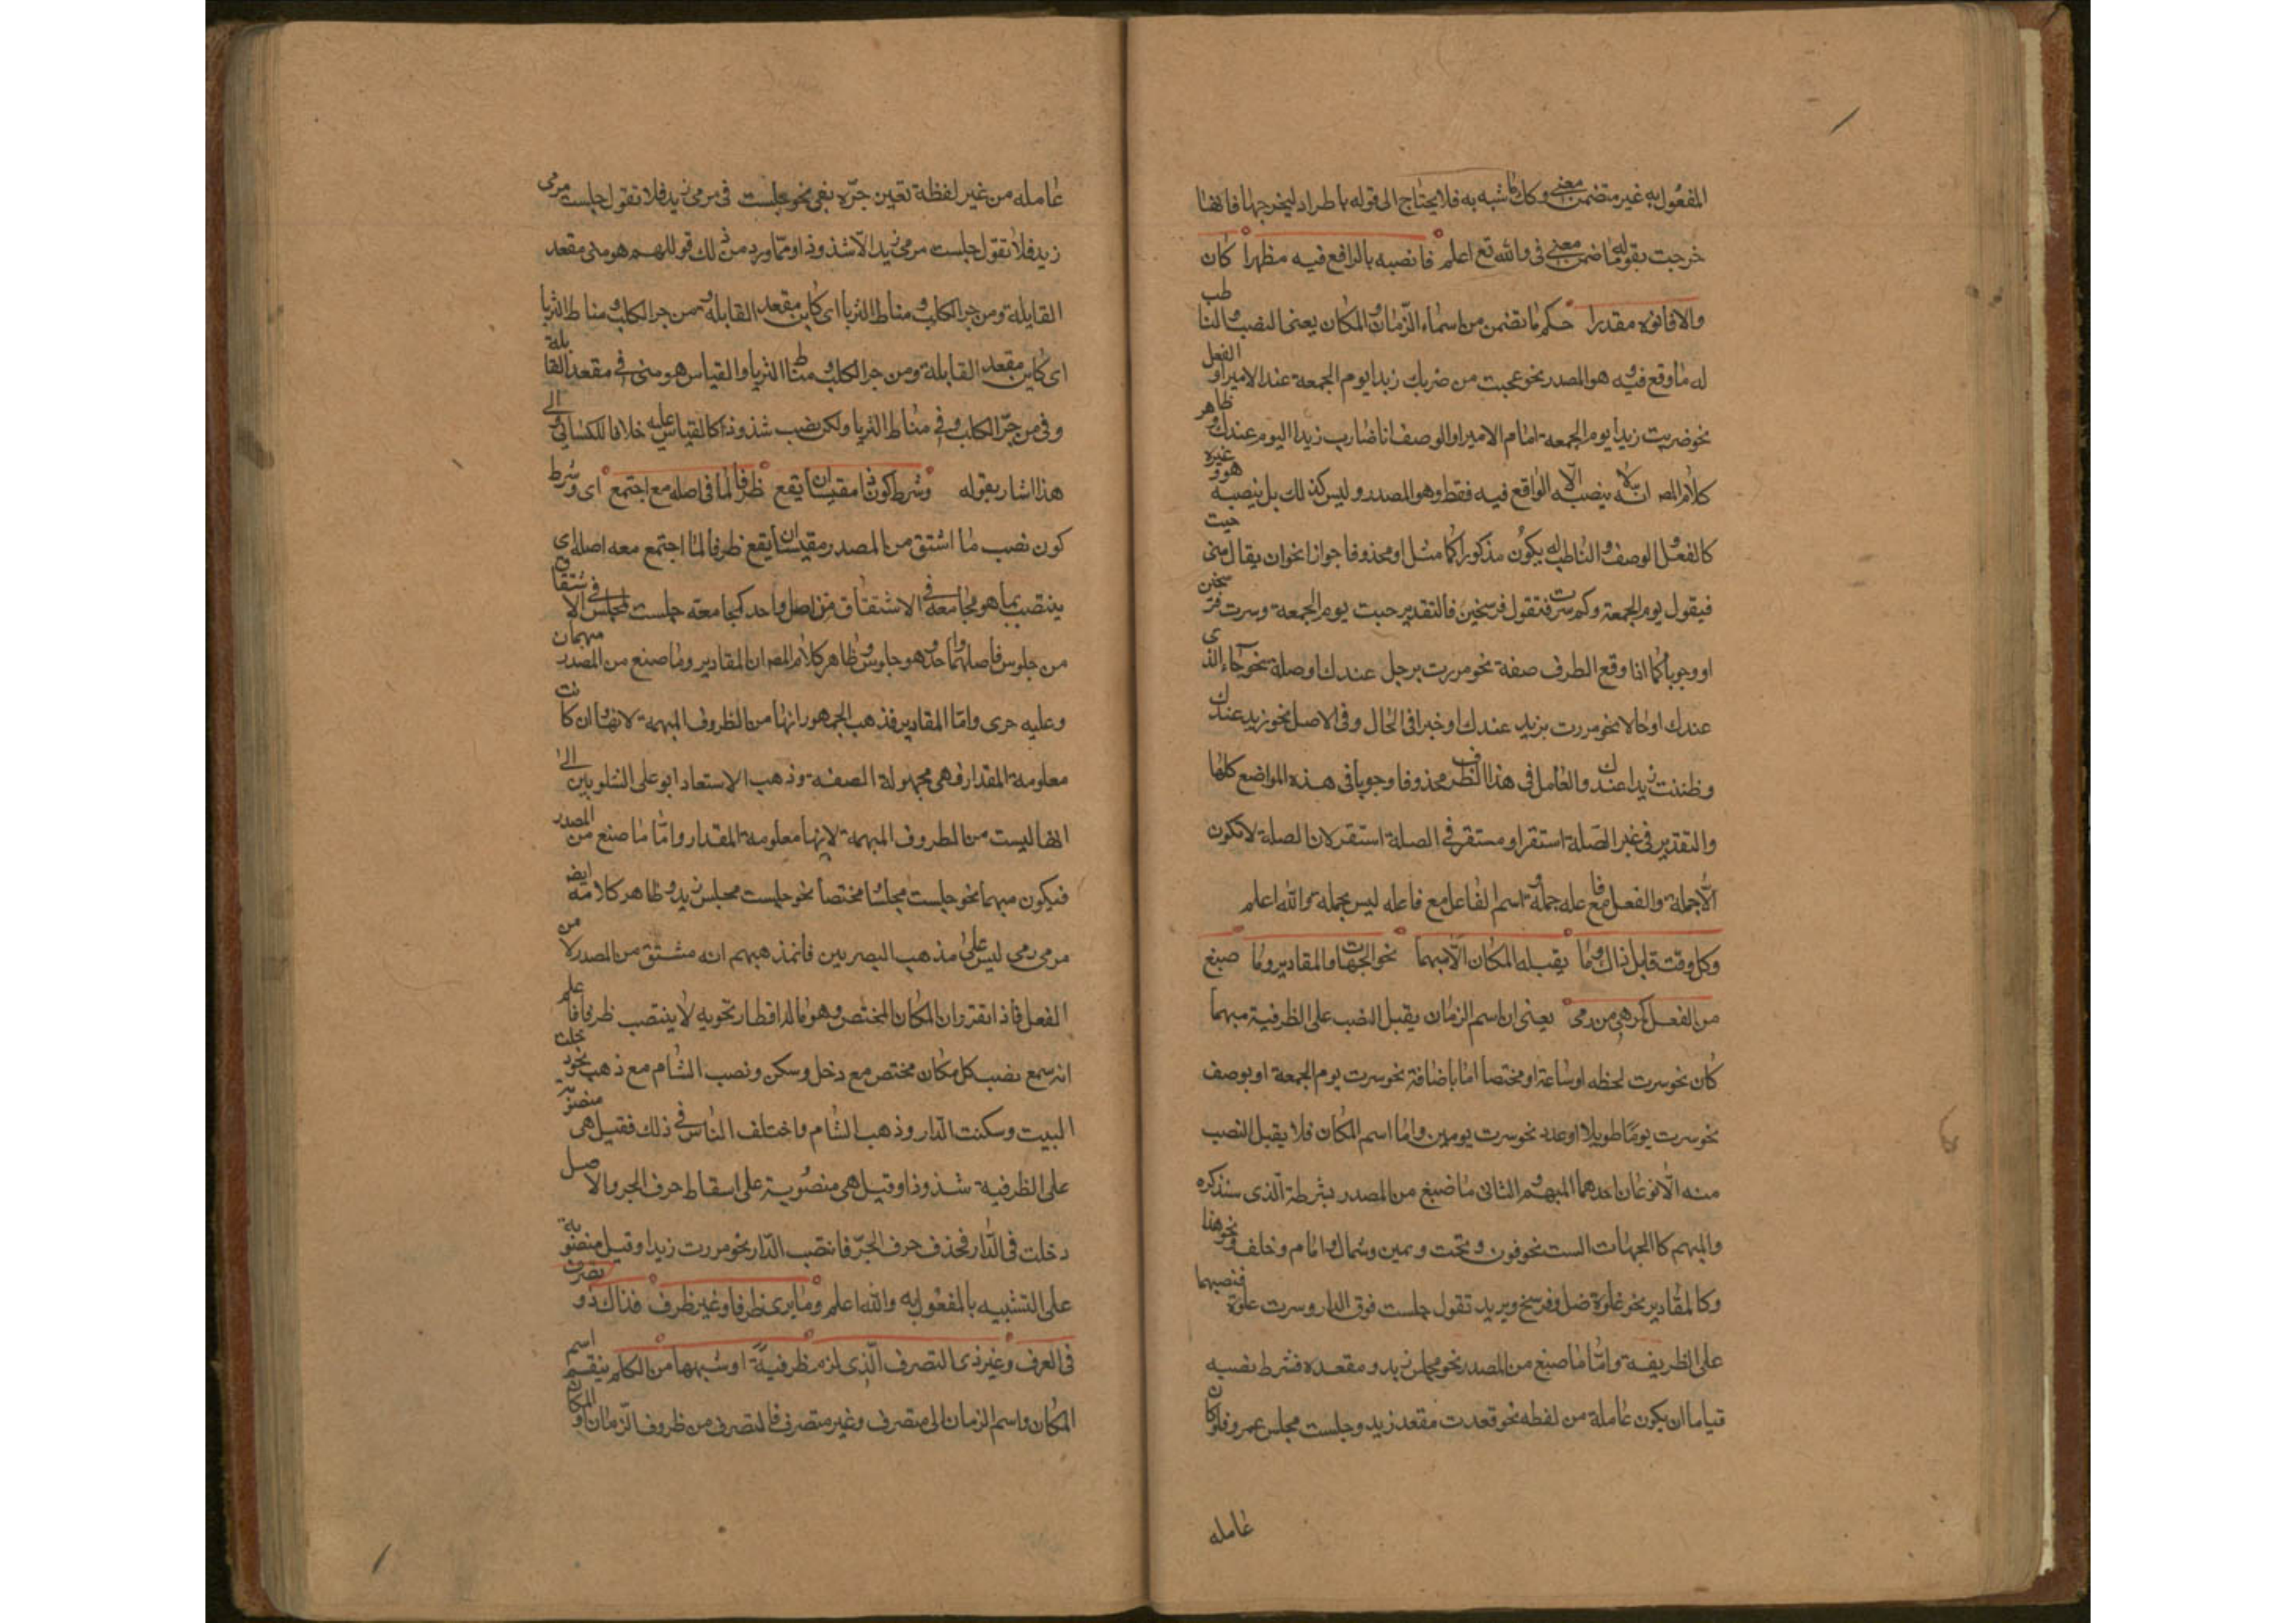 المفعول به غير متضمن معنى في وكذا ما شبه به فلا يحتاج الى قوله باطراد ليخرجها فانها
خرجت بقوله ما ضمن معنى في والله تع اعلم فانصبه بالواقع فيه مظهرا كان
والا فانوه مقدرا حكم ما تضمن من اسماء الزمان والمكان يعنى النصب والناطب
له ما وقع فيه وهو المصدر نحو عجبت من ضربك زيدا يوم الجمعة عند الامير او الفعل
نحو ضربت زيدا يوم الجمعة امام الامير او الوصف انا ضارب زيدا اليوم عندك وظاهر
كلام المص انه لا ينصبه الا الواقع فيه فقط وهو المصدر وليس كذلك بل ينصبه هو وغيره
كالفعل والوصف والناطب له يكون مذكورا كما مثل او محذوفا جوازا نحو ان يقال متى جيت
فيقول يوم الجمعة وكم سرت فتقول فرسخين فالتقدير جيت يوم الجمعة وسرت فرسخين
او وجوبا كما اذا وقع الطرف صفة نحو مررت برجل عندك او صلة نحو جاء الذى
عندك او حالا نحو مررت بزيد عندك او خبرا فى الحال وفى الاصل نحو زيد عندك
وظننت زيدا عندك والعامل فى هذا الظرف محذوفا وجوبا فى هذه المواضع كلها
والتقدير فى غير الصلة استقر او مستقر فى الصلة استقر لان الصلة لا تكون
الا جملة والفعل مع فاعله جملة واسم الفاعل مع فاعله ليس بجملة والله اعلم
وكل وقت قابل ذاك وما يقبله المكان الا مبهما نحو الجهات والمقادير وما صيغ
من الفعل كرمى من رمى يعنى ان اسم الزمان يقبل النصب على الظرفية مبهما
كان نحو سرت لحظه او ساعة او مختصا اما باضافة نحو سرت يوم الجمعة او بوصف
نحو سرت يوما طويلا او عدد نحو سرت يومين واما اسم المكان فلا يقبل النصب
منه الا نوعان احدهما المبهم والثانى ما صيغ من المصدر بشرطه الذى سنذكره
والمبهم كا الجهات الست نحو فوق وتحت ويمين وشمال وامام وخلف ونحو هذا
وكالمقادير نحو غلوة ضل وفرسخ وبريد تقول جلست فوق الدار وسرت غلوة فنصبهما
على الظريفة واما ما صيغ من المصدر نحو مجلس زيد ومقعده فشرط نصبه
قياسا ان يكون عاملة من لفظه نحو قعدت مقعد زيد وجلست مجلس عمرو فلو كان
عامله
عامله من غير لفظة تعين جره بفى نحو جلست فى مرمى زيد فلا تقول جلست مرمى
زيد فلا تقول جلست مرمى زيد الا شذوذا ومما ورد من ذلك قولهم هو منى مقعد
القايلة ومزجر الكلب ومناط الثريا اى كاين مقعد القابلة ومزجر الكلب ومناط الثريا
اى كاين مقعد القابلة ومزجر الكلب ومناط الثريا والقياس هو منى فى مقعد القابلة
وفى مزجر الكلب وفى مناط الثريا ولكن نصب شذوذا كالقياس عليه خلافا للكسائى والى
هذا اشار بقوله وشرط كون ذا مقيسا ان يقع ظرفا لما فى اصله مع اجتمع اى وشرط
كون نصب ما اشتق من المصدر مقيسا ان يقع ظرفا لما اجتمع معه اصله اى
ينتصب بما هو مجامعه فى الاشتقاق من اصل واحد كمجامعة جلست لمجلس فى الاشتقاق
من جلوس فاصلهما واحد وهو جلوس وظاهر كلام المص ان المقادير وما صيغ من المصدر مبهمان
وعليه جرى واما المقادير فذهب الجمهور انها من الظروف المبهمة لانها وان كانت
معلومة المقدار فهى مجهولة الصفة وذهب الاستعاد ابو على الشلوبين الى
انها ليست من الطروف المبهمة لانها معلومة المقدار واما ما صيغ من المصدر
فيكون مبهما نحو جلست مجلسا ومختصا نحو جلست مجلس زيد وظاهر كلامه ايضا
مرمى رمى ليس على مذهب البصريين فان مذهبهم انه مشتق من المصدر لا من
الفعل فاذا تقرر ان المكان المختص وهو ما له اقطار تحويه لا ينتصب ظرفا فاعلم
انه سمع نصب كل مكان مختص مع دخل وسكن ونصب الشام مع ذهب نحو دخلت
البيت وسكنت الدار وذهب الشام واختلف الناس فى ذلك فقيل هى منصوبة
على الظرفية شذوذا وقيل هى منصوبة على اسقاط حرف الجر والاصل
دخلت فى الدار فحذف حرف الجر فانتصب الدار نحو مررت زيدا وقيل منصوبة
على التشبيه بالمفعول به والله اعلم وما يرى ظرفا وغير ظرف فذاك ذو تصرف
فى العرف وغير ذى التصرف الذى لزم ظرفية او شبهها من الكلم ينقسم اسم
المكان واسم الزمان الى متصرف وغير متصرف فالمتصرف من ظروف الزمان او المكان